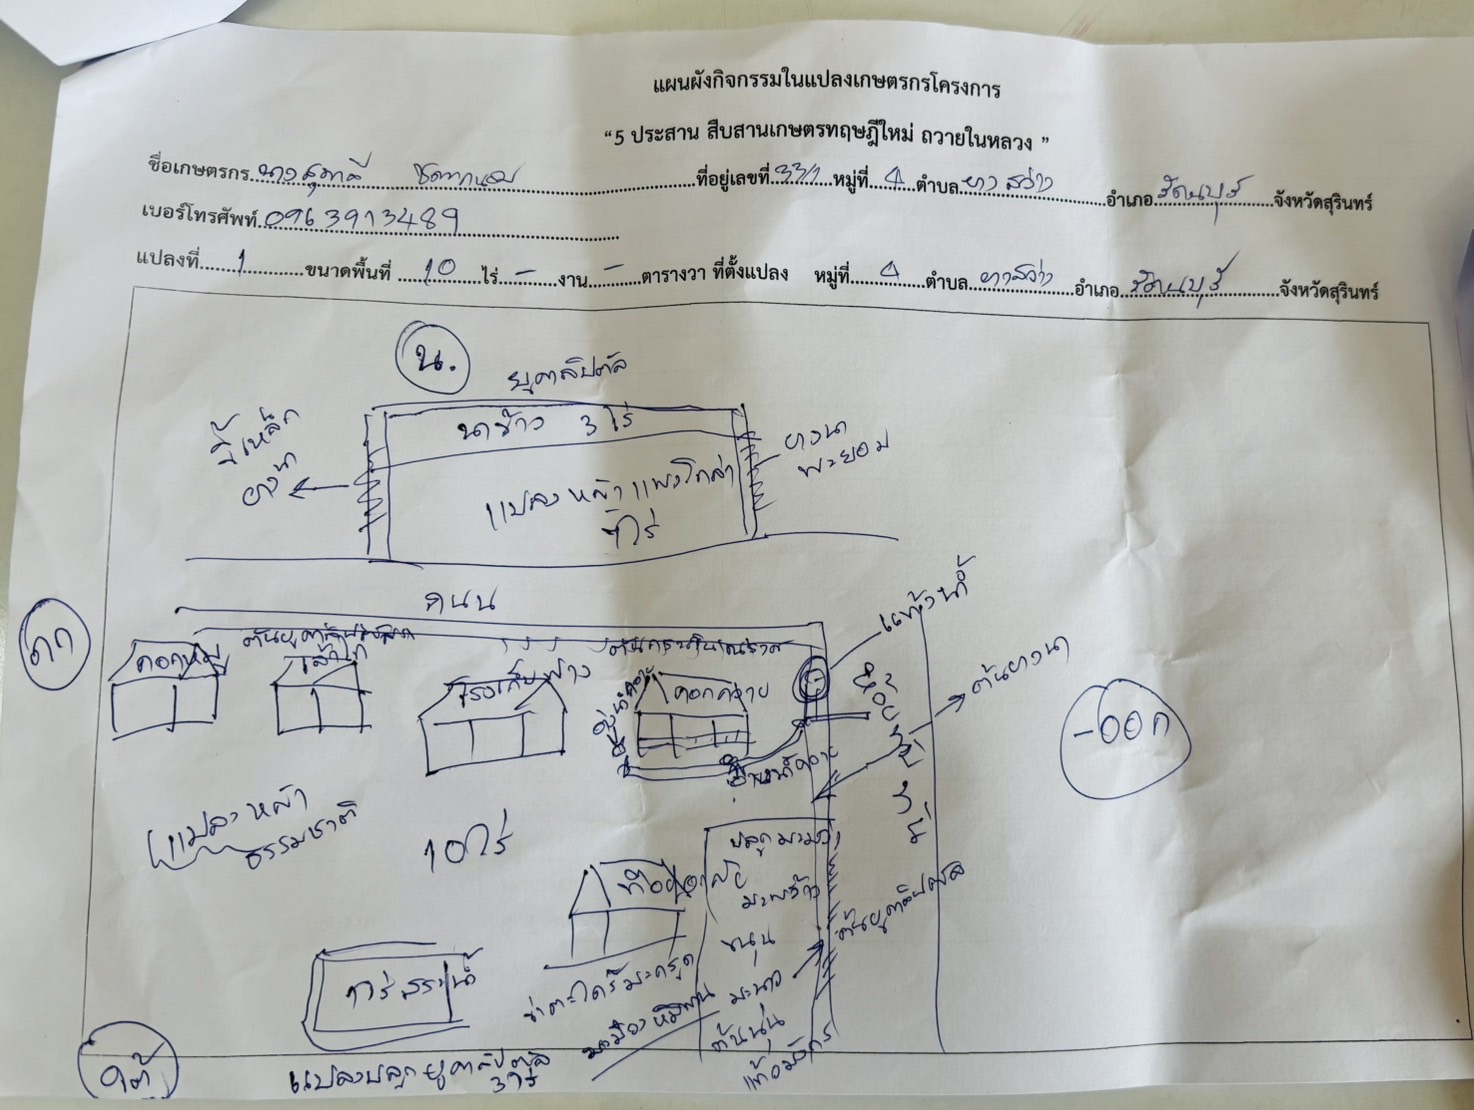 แผนผังกิจกรรมในแปลงเกษตรกรโครงการ
“5 ประสาน สืบสานเกษตรทฤษฎีใหม่ ถวายในหลวง ”
ชื่อเกษตรกร นาง ที่อยู่เลขที่ 33/1 หมู่ที่ 4 ตำบล ยางสว่าง อำเภอ รัตนบุรี จังหวัดสุรินทร์
เบอร์โทรศัพท์ 0963913489
แปลงที่ 1 ขนาดพื้นที่ 10 ไร่ - งาน - ตารางวา ที่ตั้งแปลง หมู่ที่ 4 ตำบล ยางสว่าง อำเภอ รัตนบุรี จังหวัดสุรินทร์
น.
ยูคาลิปตัส
ขี้เหล็ก
ยางนา
นาข้าว 3 ไร่
ยางนา
พะยอม
แปลงหญ้าแพงโกล่า
ไร่
ถนน
แท้งน้ำ
ตก
คอกหมู
โรงเก็บฟาง
คอกควาย
ต้นยางนา
-ออก
แปลงหญ้า
ธรรมชาติ
10 ไร่
ที่อยู่อาศัย
ปลูกมะม่วง
มะพร้าว
ขนุน
มะนาว
ต้นนุ่น
แก้วมังกร
ต้นยูคาลิปตัส
1 ไร่ สระน้ำ
ข่าตะไคร้มะกรูด
มะม่วงหิมพาน
ใต้
แปลงปลูกยูคาลิปตัส
3 ไร่